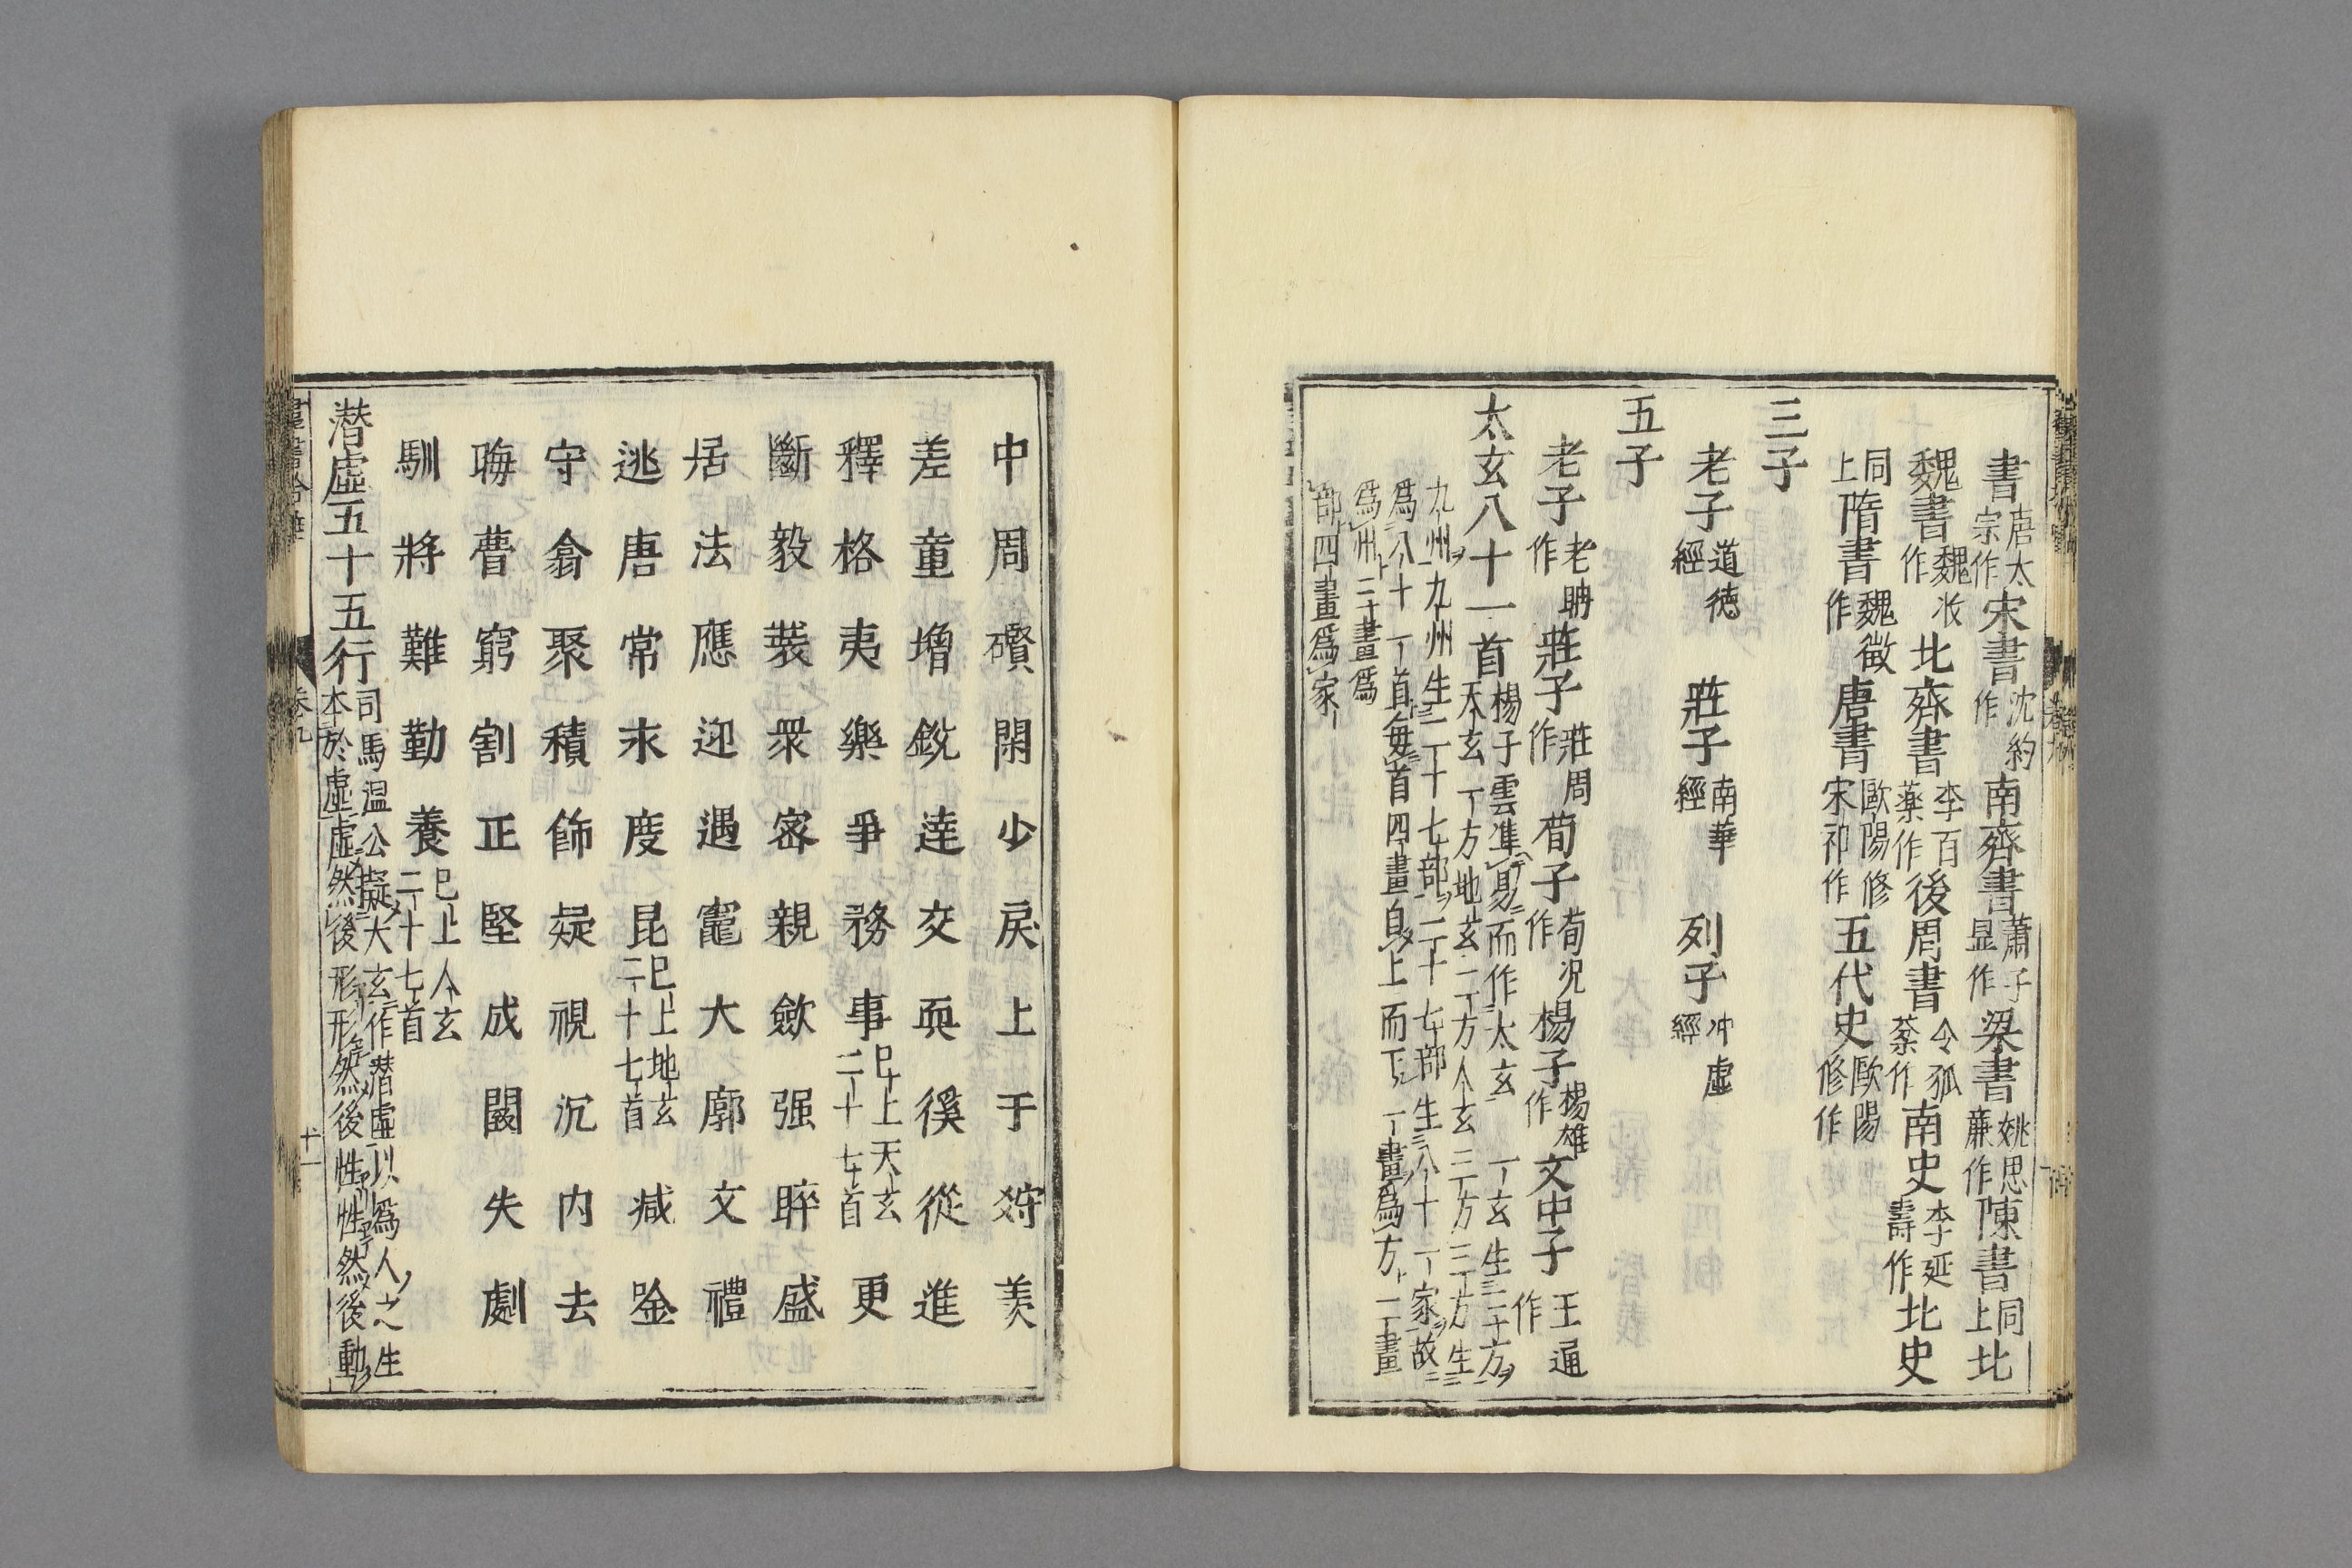 書唐太宗作宋書沈約作南齊書蕭子显作梁書姚思㢘作陳書同上北
魏書魏收作北齊書李百藥作後周書令狐棻作南史李延壽作北史
同上隋書魏徵作唐書歐陽修宋祁作五代史歐陽修作
三子
老子道德經莊子南華經列子冲虛經
五子
老子老聃作莊子莊周作荀子荀况作楊子楊雄作文中子王通作
太玄八十一首楊子雲準易而作太玄一玄生三方天玄一方地玄二方人玄三方三方生
九州九州生二十七部二十七部生八十一家故
爲八十一首每首四畫自上而下一畫爲方二畫
爲州三畫爲
部四畫爲家
中周礥閑少戾上干狩羨
差童增銳達交耎徯從進
釋格夷樂爭務事已上天玄二十七首更
斷毅裝衆密親斂强睟盛
居法應迎遇竈大廓文禮
逃唐常永度昆已上地玄二十七首減唫
守翕聚積飾疑視沉内去
晦瞢窮割正堅成闕失劇
馴將難勤養已上人玄二十七首
潛虛五十五行司馬温公擬大玄作潛虛以爲人之生本於虛虛然後形形然後性性然後動
卷九
十一